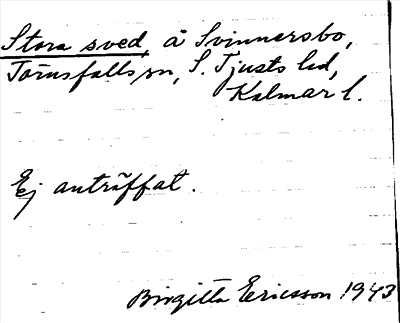 Stora sved, å Svinnersbo,
Törnsfalls sn, S. Tjusts hd,
Kalmar l.
Ej anträffat.
Birgitta Ericsson 1943